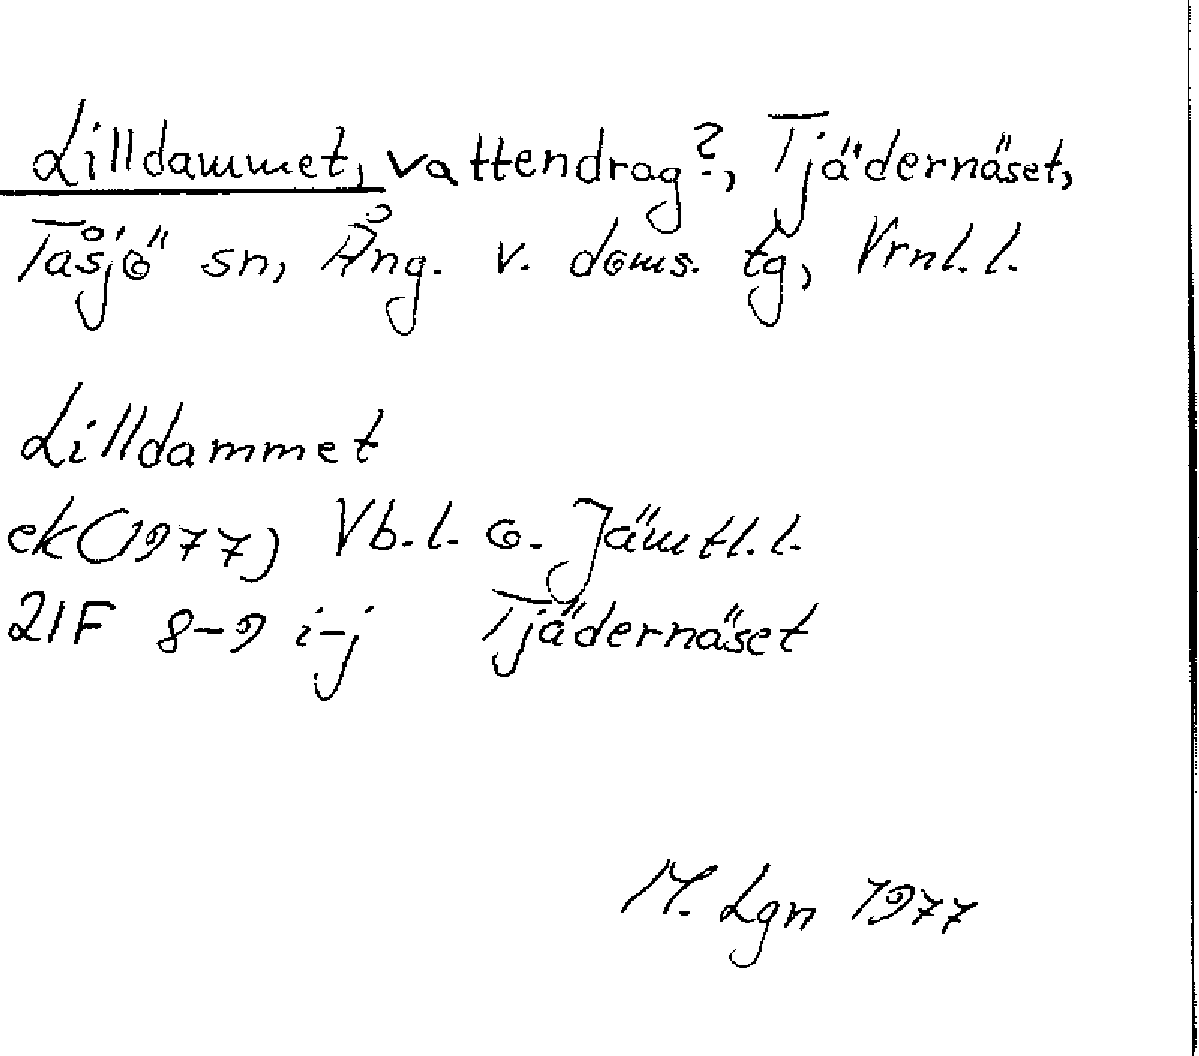 Lilldammet, vattendrag?, Tjädernäset,
Tåsjö sn, Ång. v. doms. tg, Vrnl. l.
Lilldammet
ek (1977) Vb. l. o. Jämtl. l.
21F 8-9 i-j Tjädernäset
M. Lgn 1977